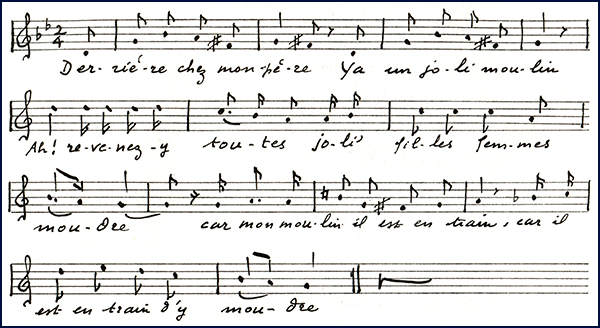 2/4
Der-riè-re chez mon pè-re Ya un jo-li mou-lin
Ah! re-ve-nez-y tou-tes joli' fil-les fem-mes
mou-dre car mon mou-lin il est en train, car il
est en train d'y mou-dre